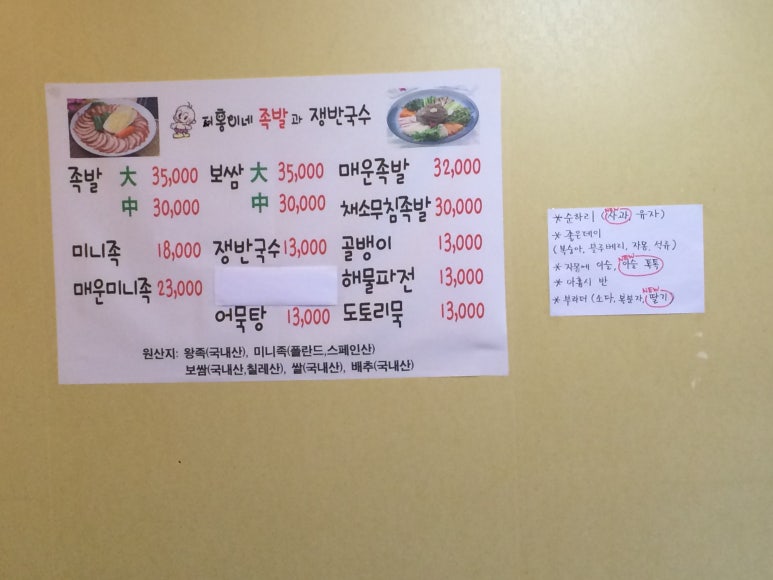 퍼홍이네 족발과 쟁반국수
족발 大 35,000 보쌈 大 35,000 매운족발 32,000
中 30,000 中 30,000 채소무침족발 30,000
미니족 18,000 쟁반국수 13,000 골뱅이 13,000
매운미니족 23,000 해물파전 13,000
어묵탕 13,000 도토리묵 13,000
원산지: 왕족(국내산), 미니족(폴란드,스페인산)
보쌈(국내산,칠레산), 쌀(국내산), 배추(국내산)
NEW
* 순하리 (사과 유자)
* 좋은데이
(복숭아, 블루베리, 자몽, 석류)
NEW
* 자몽에 이슬, 이슬 톡톡
* 아홉시 반
NEW
* 부라더 (소다, 복분자, 딸기)